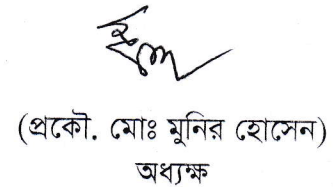 (প্রকৌ. মোঃ মুনির হোসেন)
অধ্যক্ষ